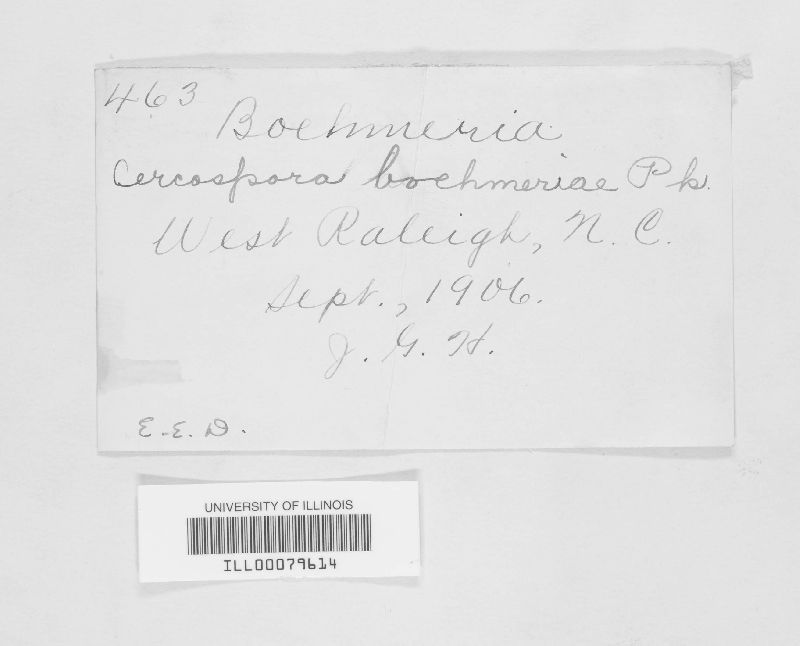 463
Boehmeria
Cercospora boehmeriae Pk.
West Raleigh, N. C.
Sept., 1906.
J. G. H.
E. E. D.
UNIVERSITY OF ILLINOIS
ILL00079614